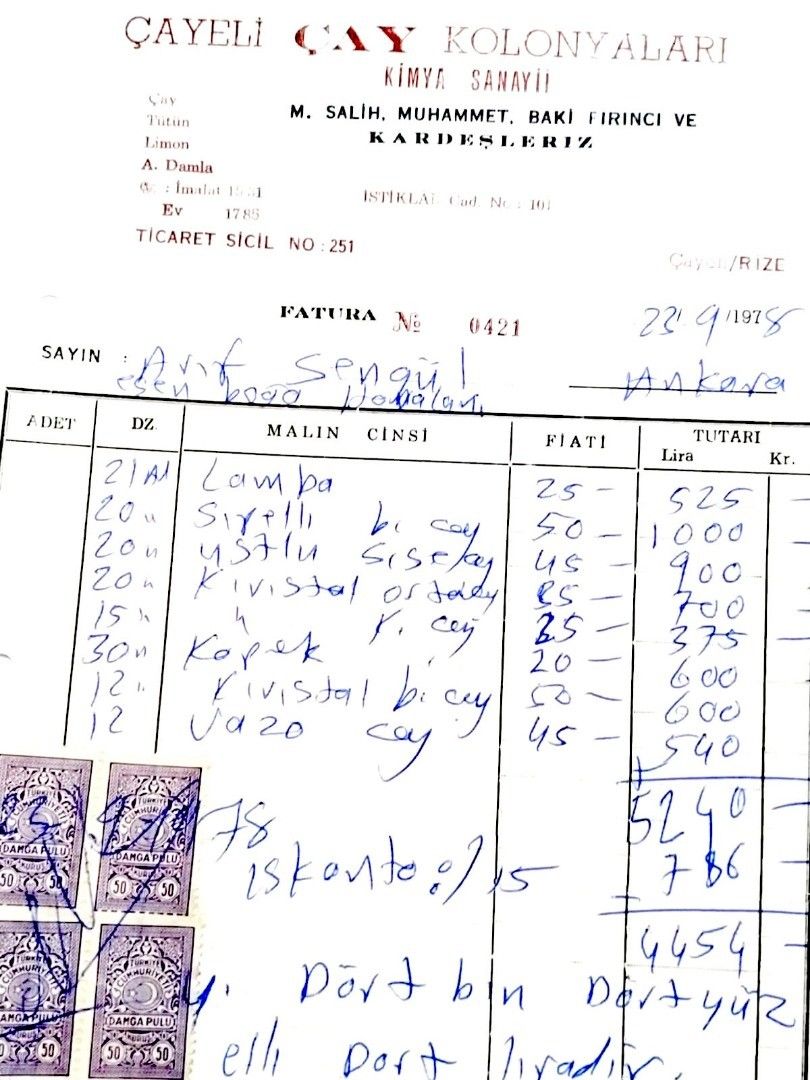 ÇAYELİ ÇAY KOLONYALARI
KİMYA SANAYİİ
M. SALİH, MUHAMMET, BAKİ FIRINCI VE
KARDEŞLERİZ
Çay
Tütün
Limon
A. Damla
İmalat
Ev 1785
İSTİKLAL Cad. No : 101
TİCARET SİCİL NO : 251
Çayeli/RİZE
FATURA № 0421
23/9/1978
SAYIN : Arif Şengül
esen boğa Ankara
ADET DZ. MALIN CİNSİ FİATİ TUTARI
Lira Kr.
21 Lamba 25 — 525 —
20 " bi cay 50 — 1000 —
20 " 45 — 900
20 " Kıristal 35 — 700
15 " " K. cay 25 — 375 —
30 " Köpek 20 — 600
12 " Kıristal bi cay 50 — 600
12 Vazo cay 45 — 540
5240 —
iskonto % 15 786 —
4454 —
23 9 1978
Y. Dört bin Dörtyüz
elli Dört liradır.
TÜRKİYE
CUMHURİYETİ
DAMGA PULU
50 KURUŞ 50
TÜRKİYE
CUMHURİYETİ
DAMGA PULU
50 KURUŞ 50
TÜRKİYE
CUMHURİYETİ
DAMGA PULU
50 KURUŞ 50
TÜRKİYE
CUMHURİYETİ
DAMGA PULU
50 KURUŞ 50